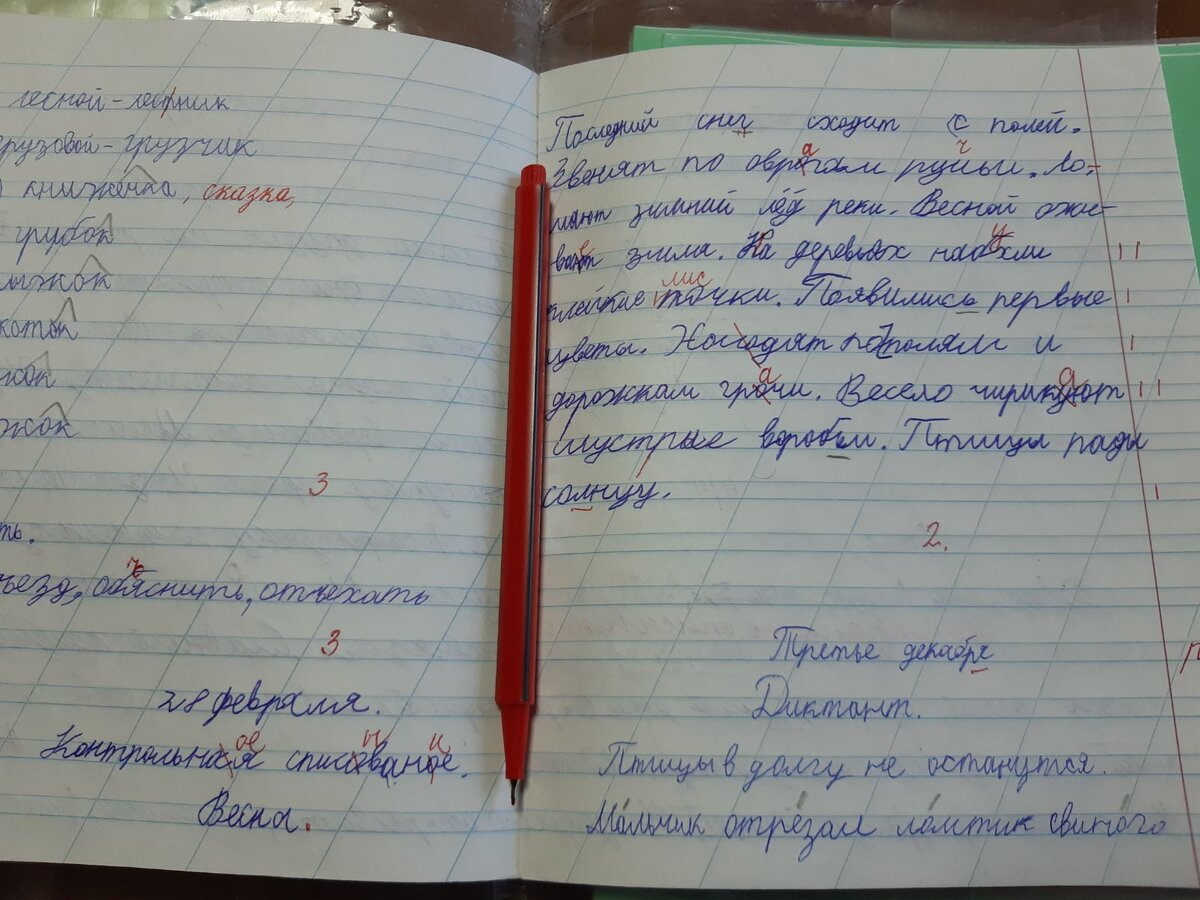 лесной-лесник
грузовой-грузчик
книжечка, сказка,
грубок
ыжок
коток
жок
жок
3
ть.
ъезд, объяснить, отъехать
3
28 февраля.
Контрольная списованое.
Весна.
Последний снег сходит с полей.
Звенят по оврагам ручьи. Ло-
мают зимний лёд реки. Весной ожи-
вает зима. На деревьях набухли
клейкие листочки. Появились первые
цветы. Ходят по полям и
дорожкам грачи. Весело чирикают
шустрые воробьи. Птицы рады
солнцу.
2.
Третье декабря
Диктант.
Птицы в долгу не останутся.
Мальчик отрезал ломтик свиного